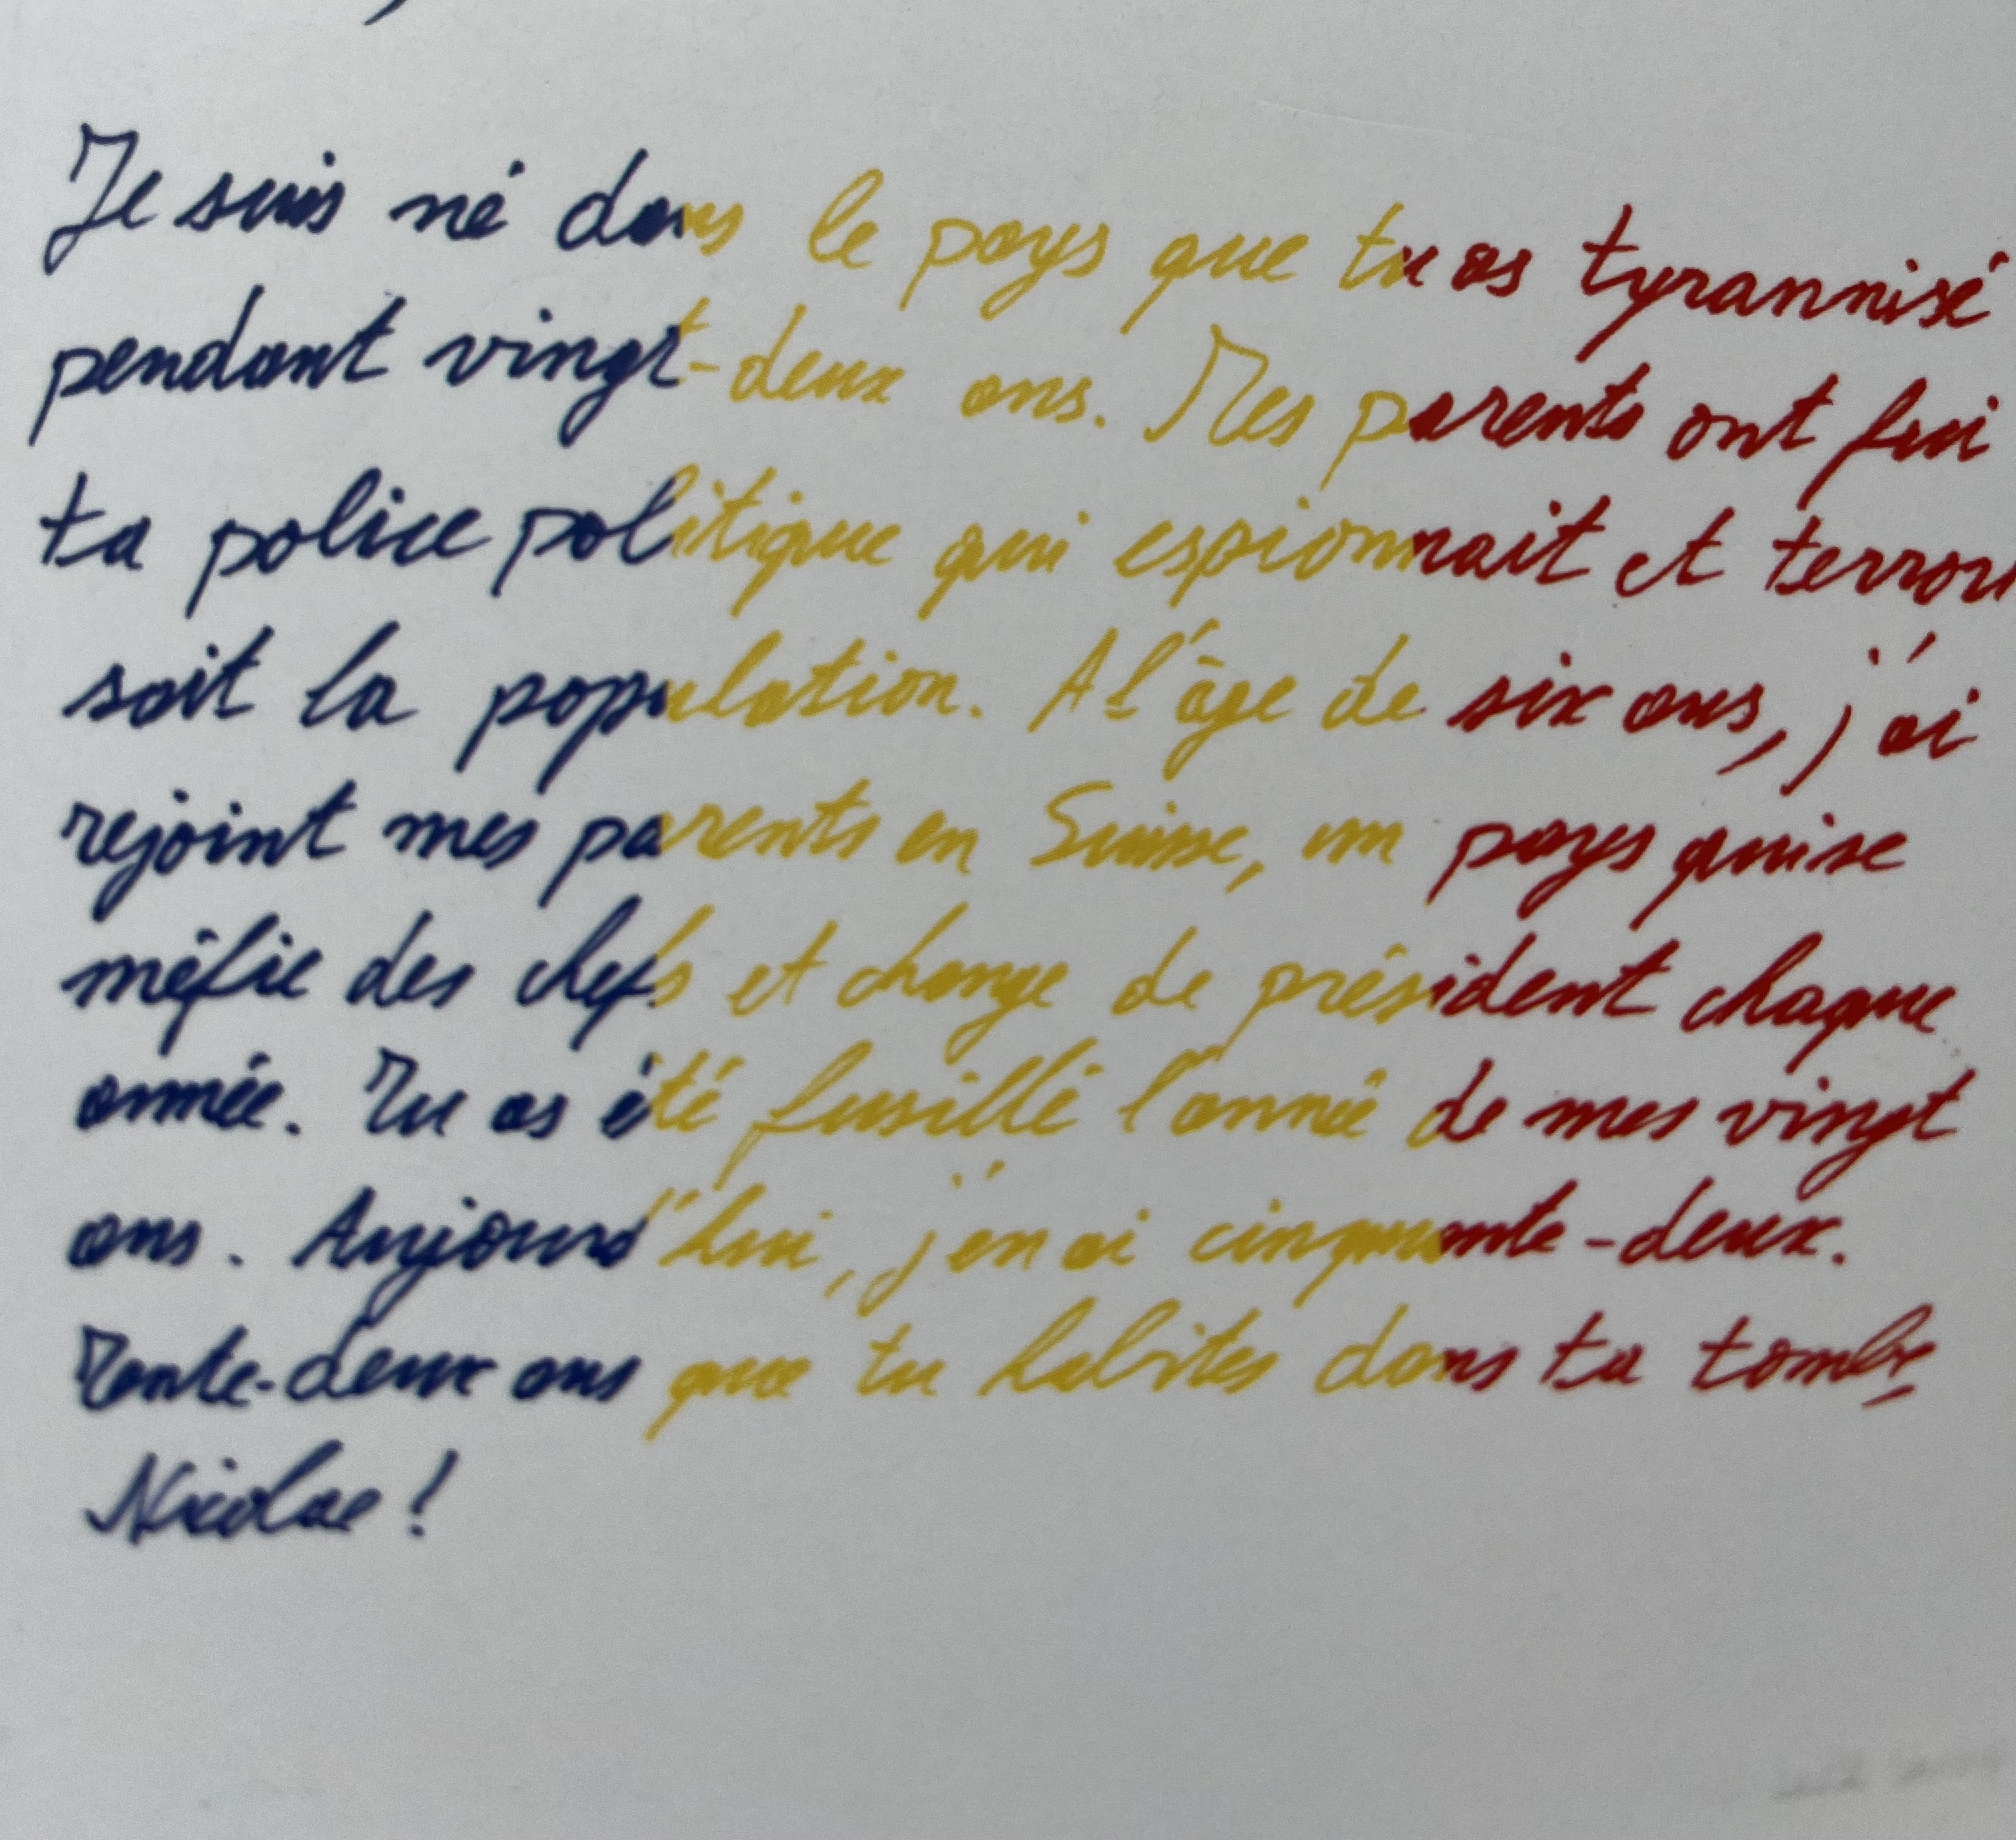 Je suis né dans le pays que tu as tyrannisé
pendant vingt-deux ans. Mes parents ont fui
ta police politique qui espionnait et terrori
sait la population. A l'âge de six ans, j'ai
rejoint mes parents en Suisse, un pays qui se
méfie des chefs et change de président chaque
année. Tu as été fusillé l'année de mes vingt
ans. Aujourd'hui, j'en ai cinquante-deux.
Trente-deux ans que tu habites dans ta tombe,
Nicolae !